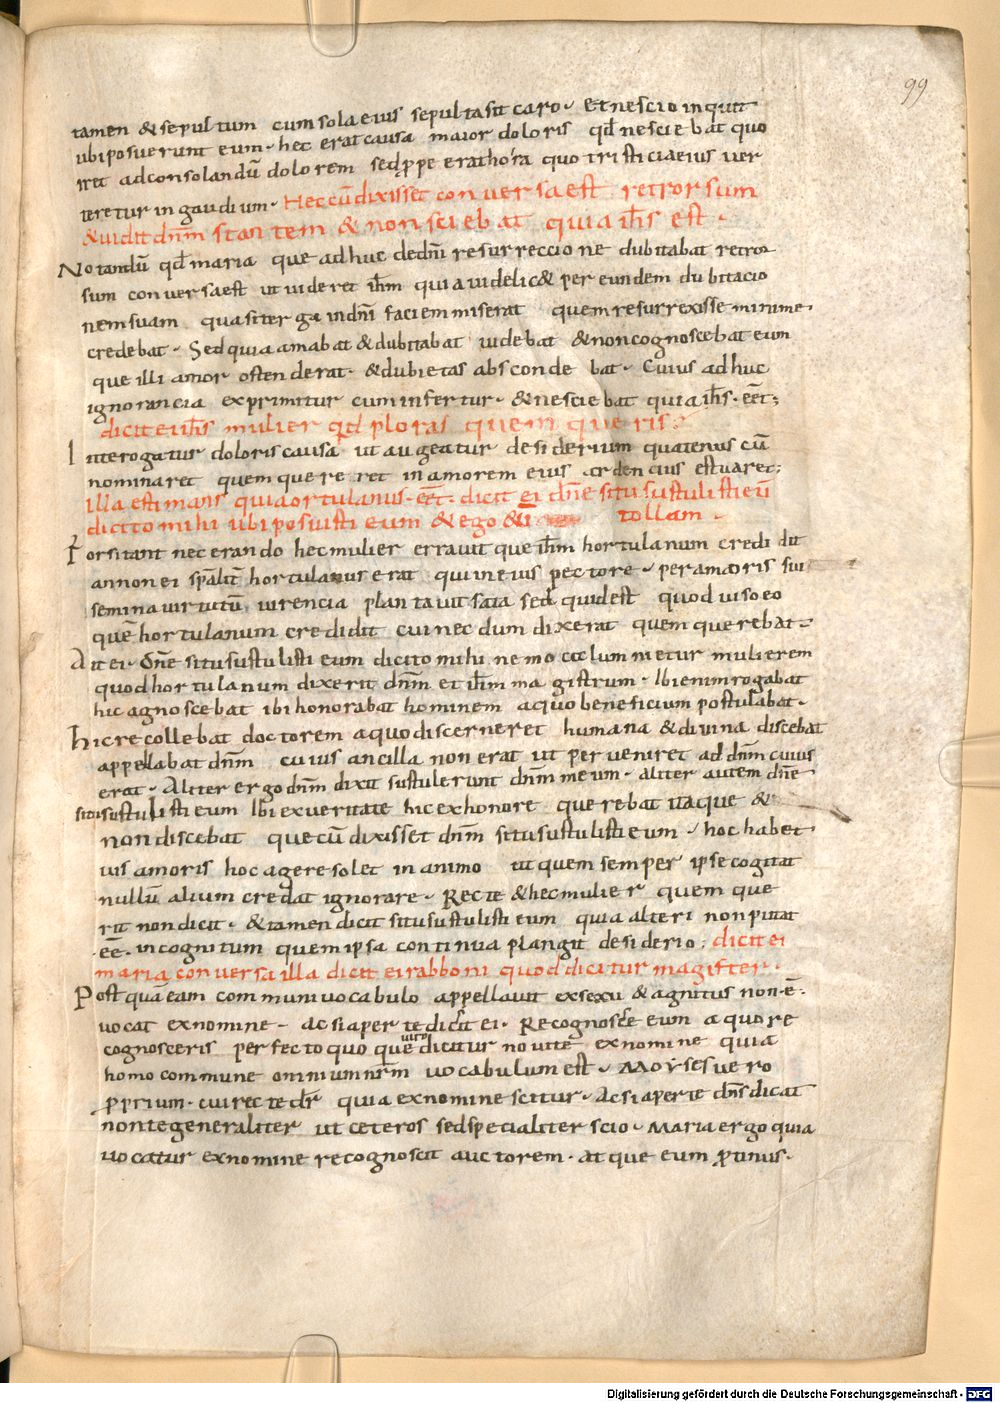 99
tamen & sepultum cum sola eius sepulta sit caro. Et nescio inquit
ubi posuerunt eum. hec erat causa maior doloris qđ nesciebat quo
iret ad consolandū dolorem sed ꝓpe erat hora quo tristicia eius ver
teretur in gaudium. Hec cū dixisset conversa est retrorsum
& vidit dn̄m stantem & non sciebat quia ih̄s est.
Notandū qđ maria que adhuc de dn̄i resurreccione dubitabat retror
sum conversa est ut videret ih̄m quia videlic& per eundem dubitacio
nem suam quasi terga in dn̄i faciem miserat quem resurrexisse minime
credebat. Sed quia amabat & dubitabat videbat & non cognoscebat eum
que illi amor ostenderat. & dubietas abscondebat. Cuius adhuc
ignorancia exprimitur cum infertur. & nesciebat quia ih̄s. eēt;
dicit ei ih̄s mulier qd ploras quem queris?
Interrogatur doloris causa ut augeatur desiderium quatenus cū
nominaret quem quereret in amorem eius ardencius estuaret;
illa estimans quia ortulanus. eēt. dicit ei dn̄e si tu sustulisti eū
dicito mihi ubi posuisti eum & ego tollam.
Forsitant nec erando hec mulier erravit que ih̄m hortulanum credidit
an non ei sp̄alit̄ hortulanus erat qui in eius pectore. per amoris sui
semina virtutū virencia plantavit sata sed quid est quod viso eo
quē hortulanum credidit cui necdum dixerat quem querebat.
Ait ei. Dn̄e si tu sustulisti eum dicito mihi nemo calumnietur mulierem
quod hortulanum dixerit dn̄m et ih̄m magistrum. Ibi enim rogabat
hic agnoscebat ibi honorabat hominem a quo beneficium postulabat.
hic recollebat doctorem a quo discerneret humana & divina discebat
appellabat dn̄m cuius ancilla non erat ut perveniret ad dn̄m cuius
erat. Aliter ergo dn̄m dixit sustulerunt dn̄m meum. aliter autem dn̄e
si tu sustulisti eum Ibi ex veritate hic ex honore querebat itaque &
non discebat que cū dixisset dn̄m si tu sustulisti eum. hoc habet
vis amoris hoc agere solet in animo ut quem semper ipse cogitat
nullū alium credat ignorare. Recte & hec mulier quem que
rit non dicit. & tamen dicit si tu sustulisti eum quia alteri non putat
.eē. incognitum quem ipsa continua plangit desiderio; dicit ei
maria conversa illa dicit ei rabboni quod dicitur magister.
Post quā eam communi vocabulo appellavit ex sexu & agnitus non.ē.
vocat ex nomine. ac si aperte dicat ei. Recognosce eum a quo re
cognosceris perfecto quoque viro dicitur novi te ex nomine quia
homo commune omnium nr̄m vocabulum est. Moyses vero
ꝓprium. cui recte dr̄ quia ex nomine scitur. Ac si aperte dn̄s dicat
non te generaliter ut ceteros sed specialiter scio. Maria ergo quia
vocatur ex nomine recognoscit auctorem. atque eum ꝓtinus.
Digitalisierung gefördert durch die Deutsche Forschungsgemeinschaft - DFG